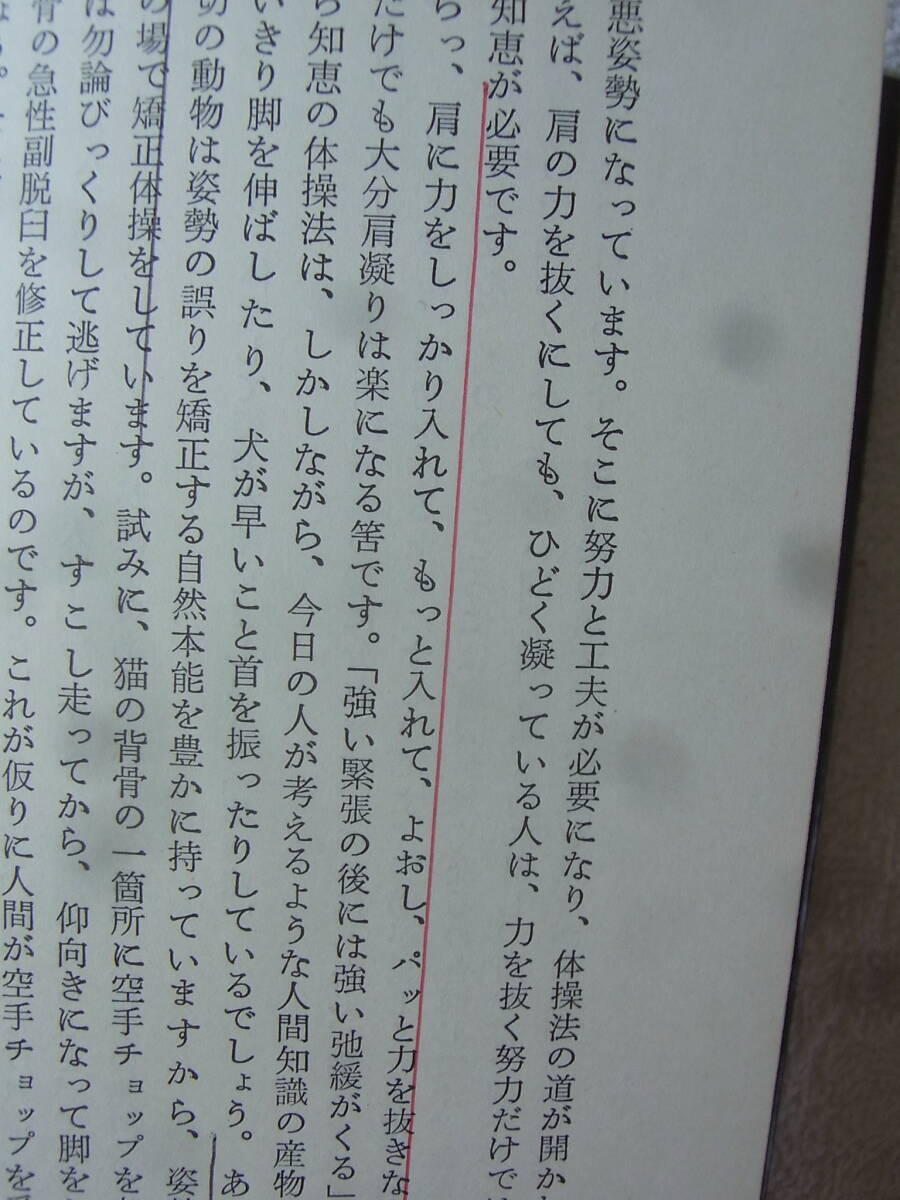 悪姿勢になっています。そこに努力と工夫が必要になり、体操法の道が開か
えば、肩の力を抜くにしても、ひどく凝っている人は、力を抜く努力だけで
知恵が必要です。
らっ、肩に力をしっかり入れて、もっと入れて、よおし、パッと力を抜きな
だけでも大分肩凝りは楽になる筈です。「強い緊張の後には強い弛緩がくる」
ら知恵の体操法は、しかしながら、今日の人が考えるような人間知識の産物
いきり脚を伸ばしたり、犬が早いこと首を振ったりしているでしょう。あ
切の動物は姿勢の誤りを矯正する自然本能を豊かに持っていますから、姿
の場で矯正体操をしています。試みに、猫の背骨の一箇所に空手チョップを
は勿論びっくりして逃げますが、すこし走ってから、仰向きになって脚を
骨の急性副脱臼を修正しているのです。これが仮りに人間が空手チョップを